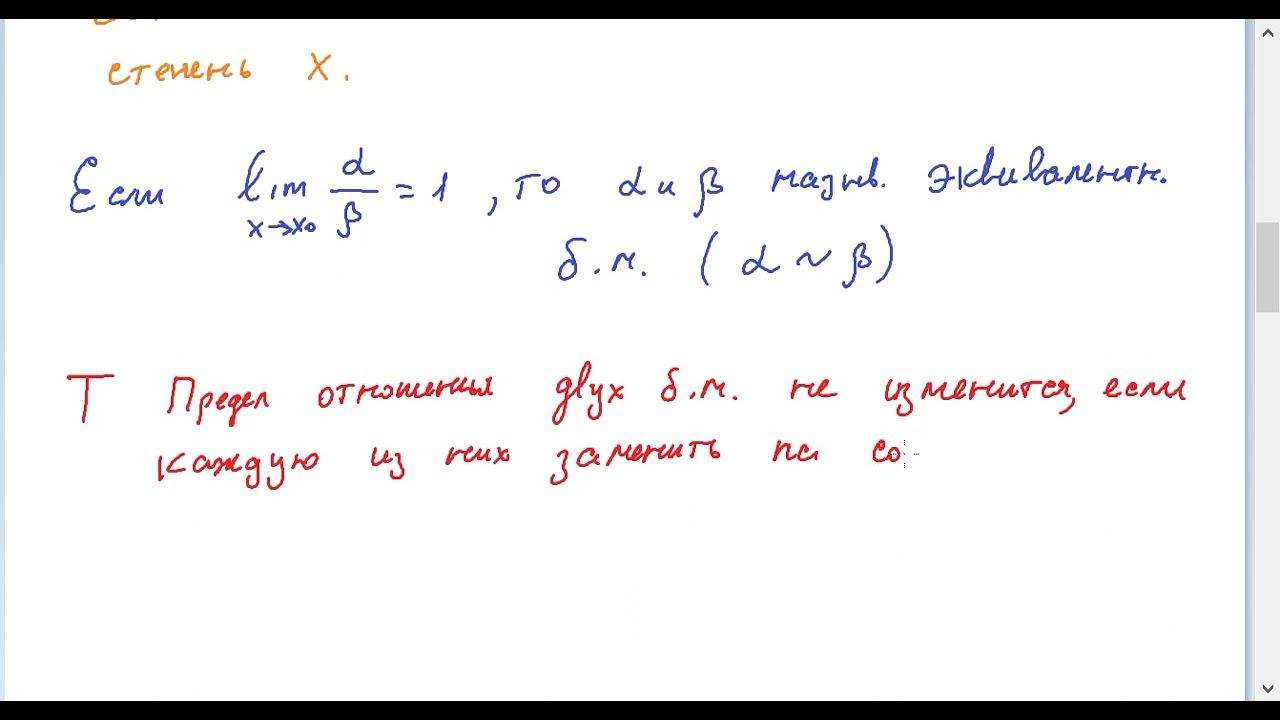 степень x.
Если lim α/β = 1, то α и β назыв. эквивалентн.
x→x₀
б.м. (α ~ β)
Т Предел отношения двух б.м. не изменится, если
каждую из них заменить на со